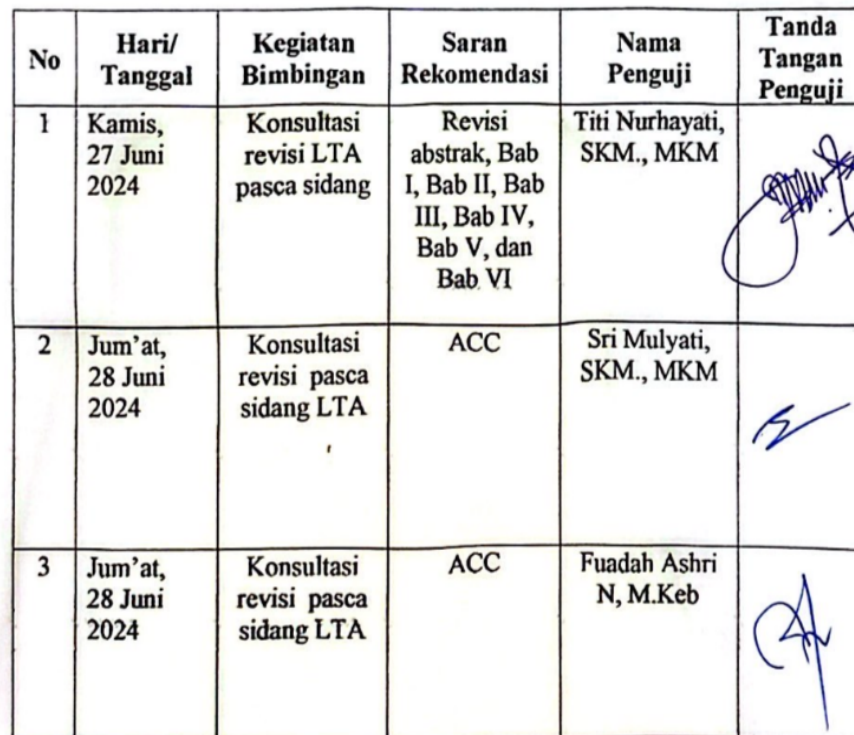 No
Hari/
Tanggal
Kegiatan
Bimbingan
Saran
Rekomendasi
Nama
Penguji
Tanda
Tangan
Penguji
1
Kamis,
27 Juni
2024
Konsultasi
revisi LTA
pasca sidang
Revisi
abstrak, Bab
I, Bab II, Bab
III, Bab IV,
Bab V, dan
Bab VI
Titi Nurhayati,
SKM., MKM
2
Jum'at,
28 Juni
2024
Konsultasi
revisi pasca
sidang LTA
ACC
Sri Mulyati,
SKM., MKM
3
Jum'at,
28 Juni
2024
Konsultasi
revisi pasca
sidang LTA
ACC
Fuadah Ashri
N, M.Keb